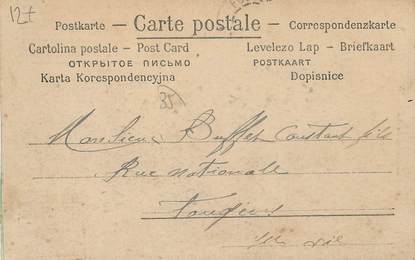 12+
Postkarte – Carte postale – Correspondenzkarte
Cartolina postale – Post Card Levelezo Lap – Briefkaart
ОТКРЫТОЕ ПИСЬМО POSTKAART
Karta Korespondencyjna Dopisnice
35
Monsieur Buffet Constant fils
Rue Nationale